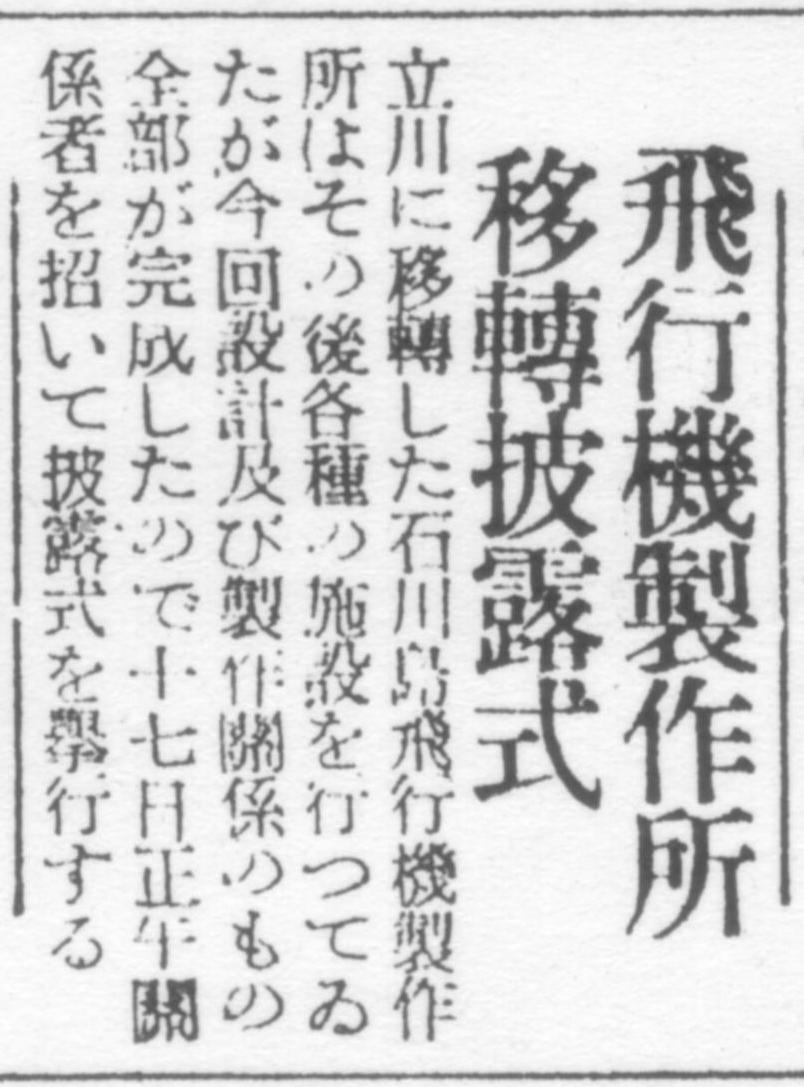 飛行機製作所
移轉披露式
立川に移轉した石川島飛行機製作
所はその後各種の施設を行つてゐ
たが今回設計及び製作關係のもの
全部が完成したので十七日正午關
係者を招いて披露式を擧行する